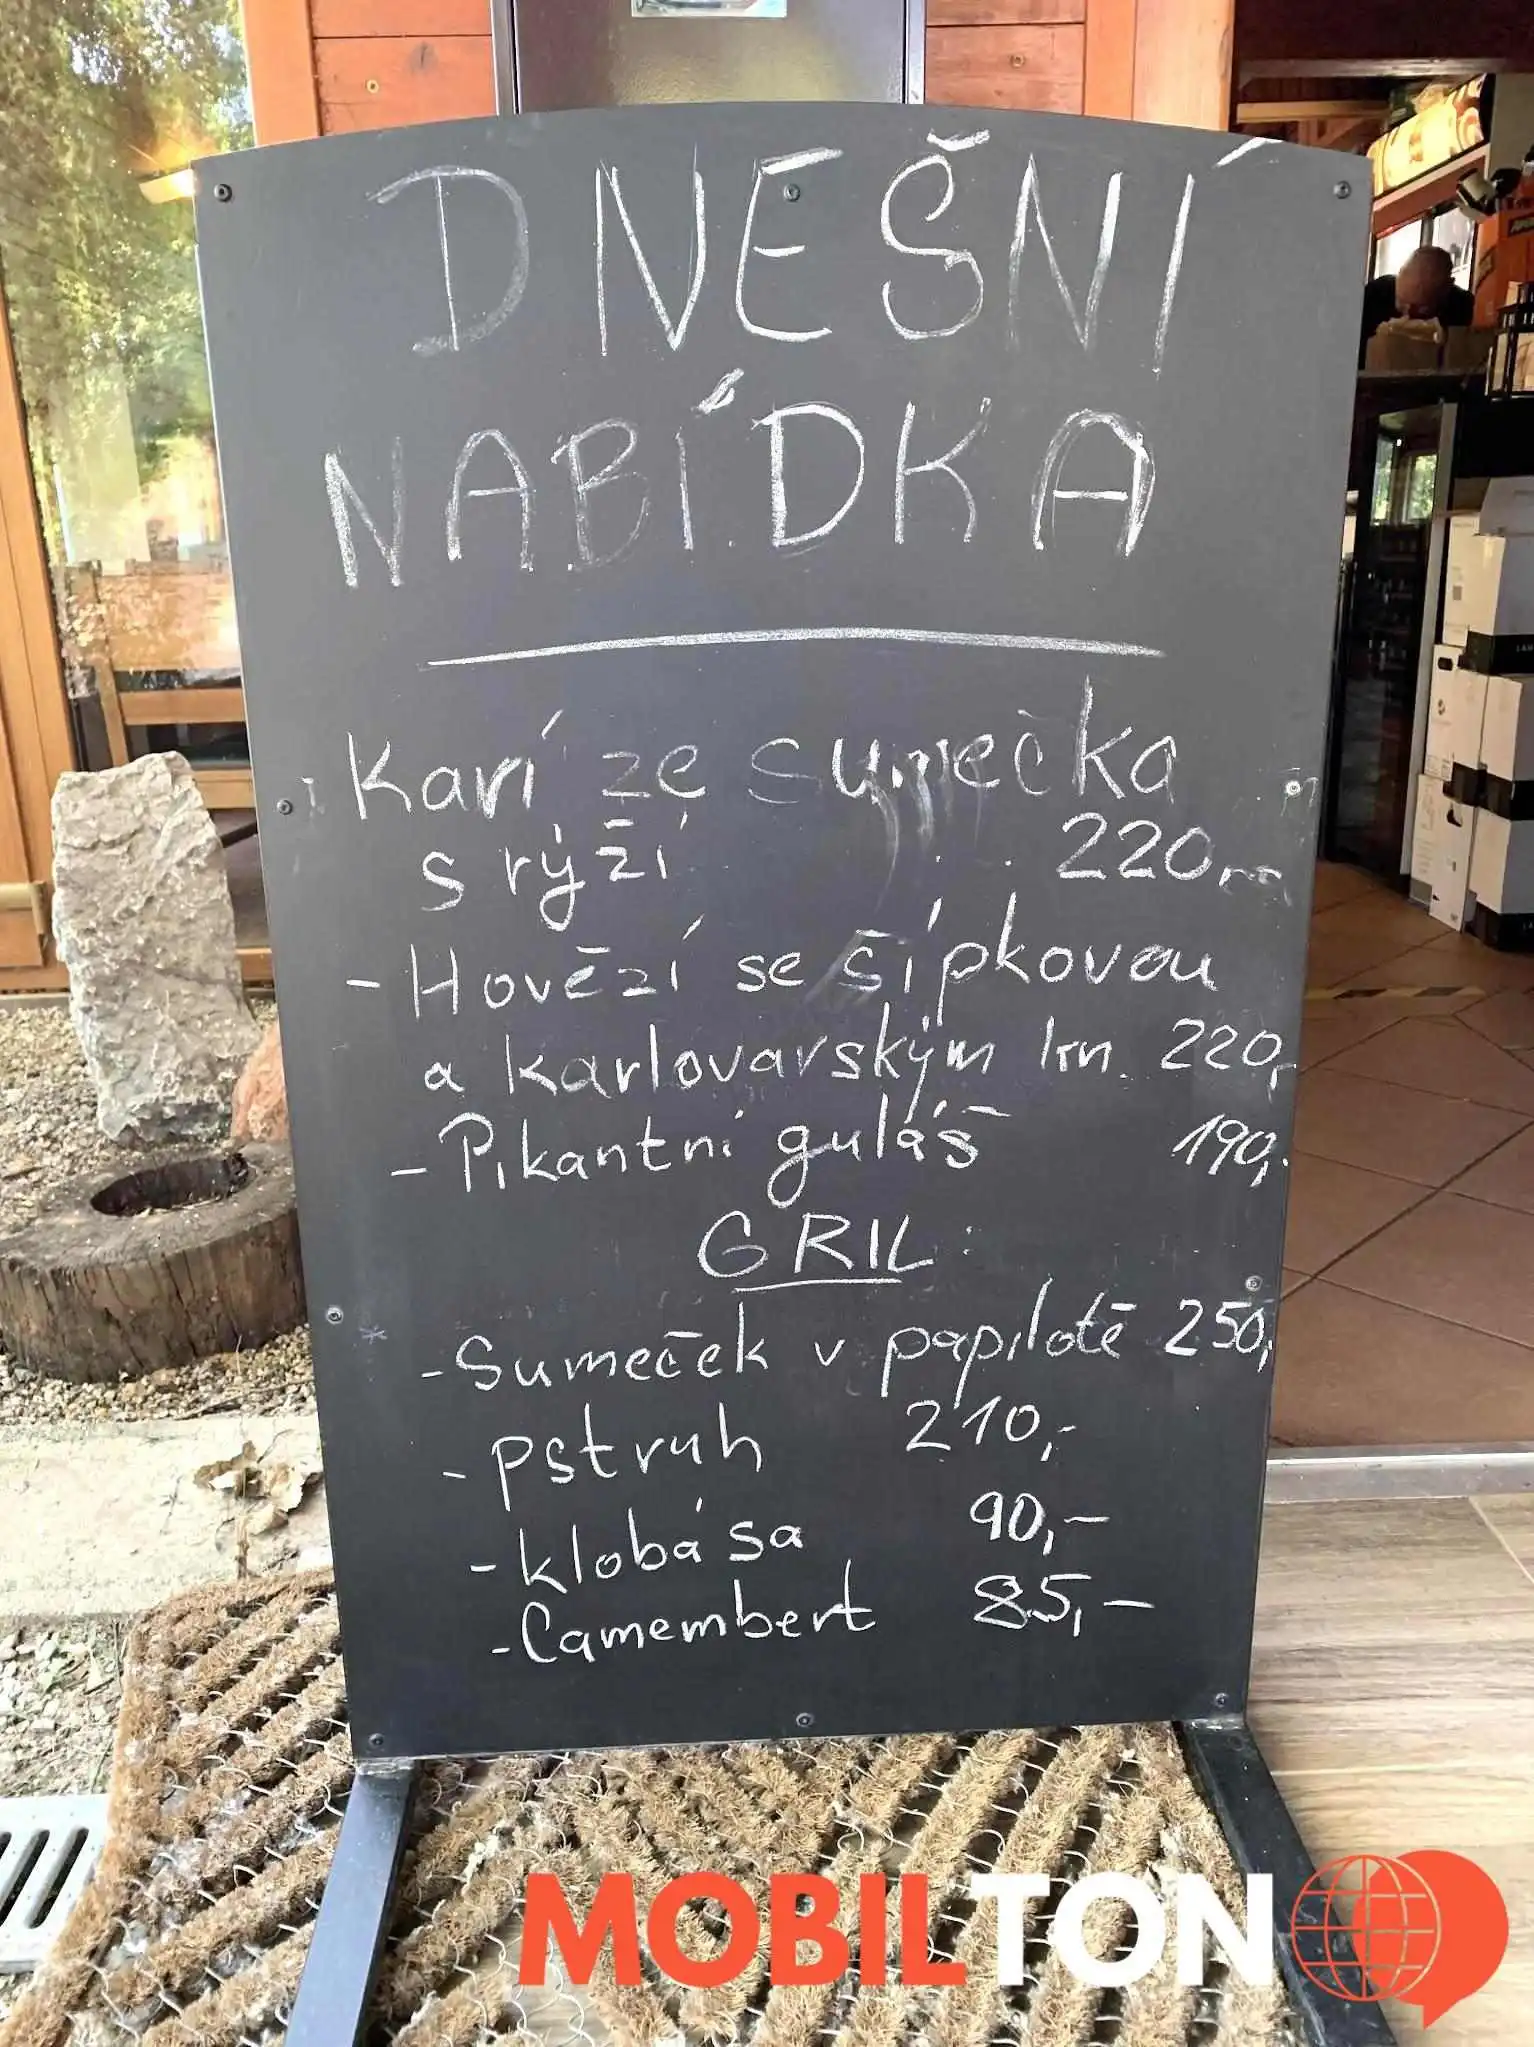 DNEŠNÍ
NABÍDKA
Karí ze sumečka
s rýží 220,-
- Hovězí se šípkovou
a karlovarským kn. 220,-
- Pikantní guláš 190,-
GRIL:
- Sumeček v papilotě 250,-
- pstruh 210,-
- klobása 90,-
- Camembert 85,-
MOBILTON